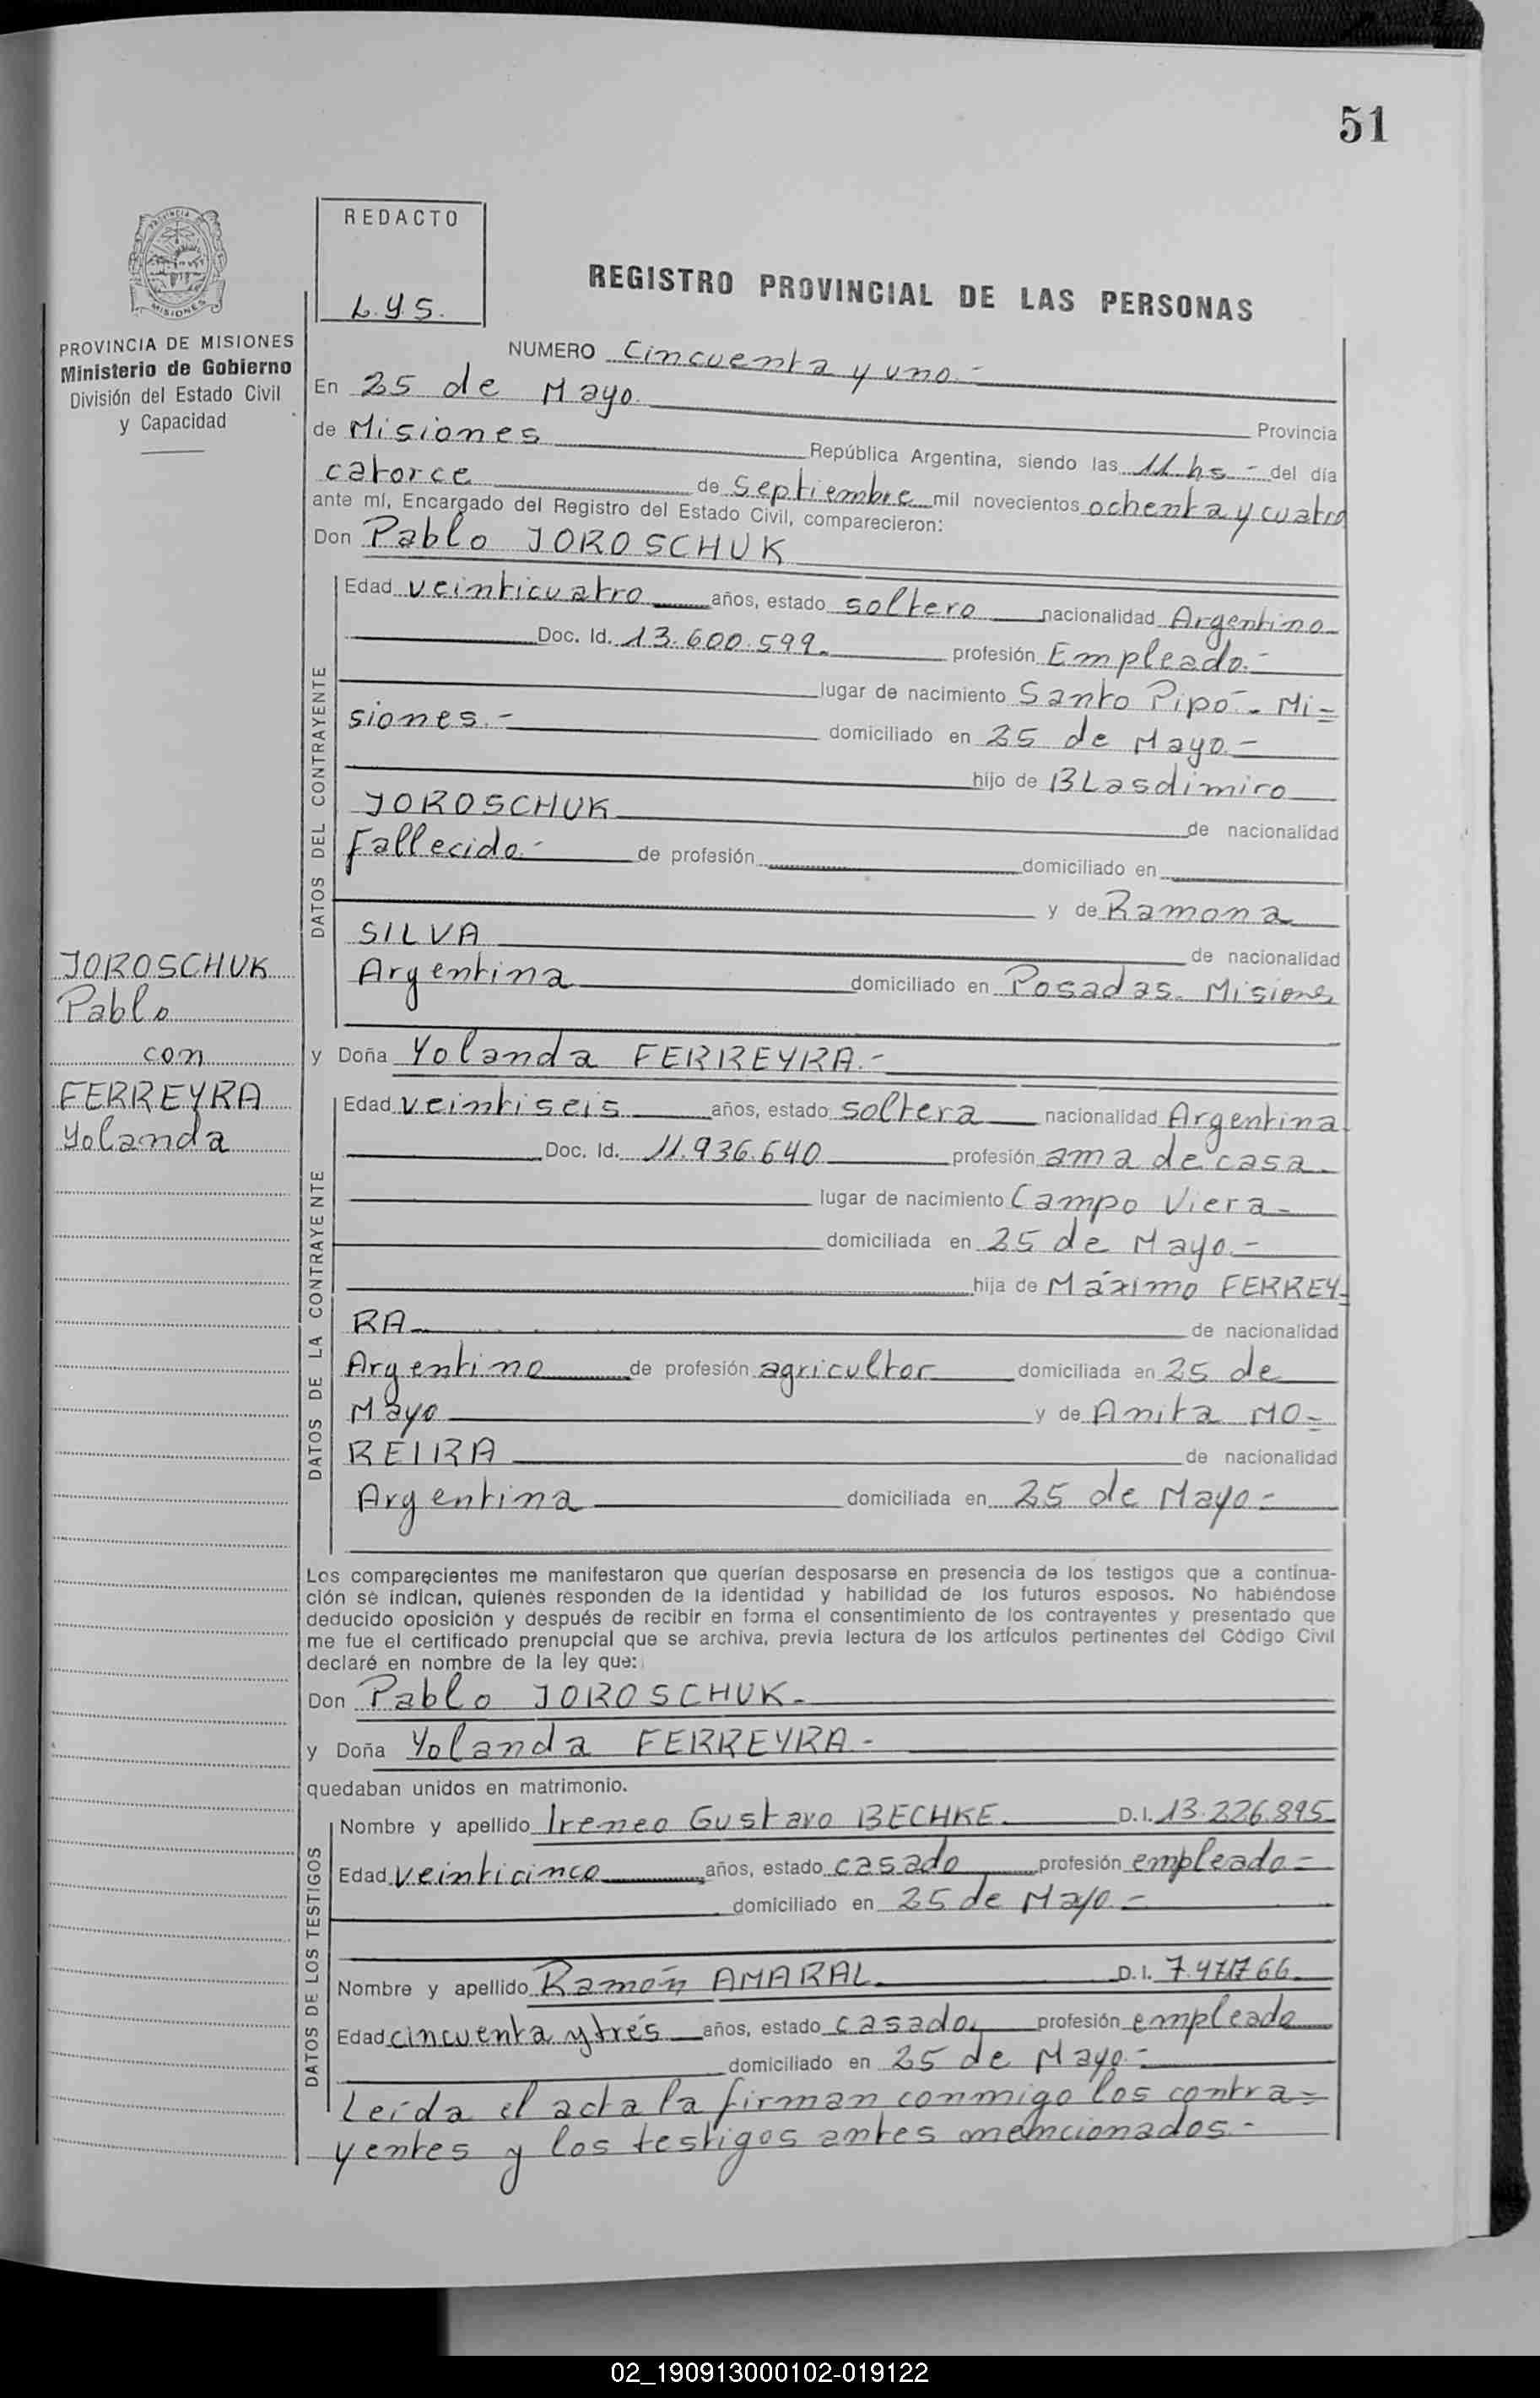 51
REDACTO
L.Y.S.
PROVINCIA DE MISIONES
Ministerio de Gobierno
División del Estado Civil
y Capacidad
REGISTRO PROVINCIAL DE LAS PERSONAS
NUMERO Cincuenta y uno.-
En 25 de Mayo. Provincia
de Misiones República Argentina, siendo las 11 hs - del día
catorce de Septiembre mil novecientos ochenta y cuatro
ante mí, Encargado del Registro del Estado Civil, comparecieron:
Don Pablo JOROSCHUK
DATOS DEL CONTRAYENTE
Edad veinticuatro años, estado soltero nacionalidad Argentino
Doc. Id. 13.600.599. profesión Empleado.-
lugar de nacimiento Santo Pipó - Mi=
siones.- domiciliado en 25 de Mayo.-
hijo de BLasdimiro
JOROSCHUK de nacionalidad
Fallecido.- de profesión domiciliado en
y de Ramona
SILVA de nacionalidad
Argentina domiciliado en Posadas. Misiones
JOROSCHUK
Pablo
con
FERREYRA
Yolanda
y Doña Yolanda FERREYRA.-
DATOS DE LA CONTRAYENTE
Edad veintiseis años, estado soltera nacionalidad Argentina
Doc. Id. 11.936.640 profesión ama de casa.
lugar de nacimiento Campo Viera-
domiciliada en 25 de Mayo.-
hija de Máximo FERREY=
RA de nacionalidad
Argentino de profesión agricultor domiciliada en 25 de
Mayo y de Anita MO=
REIRA de nacionalidad
Argentina domiciliada en 25 de Mayo-
Los comparecientes me manifestaron que querían desposarse en presencia de los testigos que a continua-
ción se indican, quienes responden de la identidad y habilidad de los futuros esposos. No habiéndose
deducido oposición y después de recibir en forma el consentimiento de los contrayentes y presentado que
me fue el certificado prenupcial que se archiva, previa lectura de los artículos pertinentes del Código Civil
declaré en nombre de la ley que:
Don Pablo JOROSCHUK-
y Doña Yolanda FERREYRA.-
quedaban unidos en matrimonio.
DATOS DE LOS TESTIGOS
Nombre y apellido Ireneo Gustavo BECHKE D.I. 13.226.895
Edad veinticinco años, estado casado profesión empleado-
domiciliado en 25 de Mayo.-
Nombre y apellido Ramón AMARAL D.I.
Edad cincuenta y tres años, estado casado profesión empleado
domiciliado en 25 de Mayo.-
Leída el acta la firman conmigo los contra=
yentes y los testigos antes mencionados.-
02_190913000102-019122